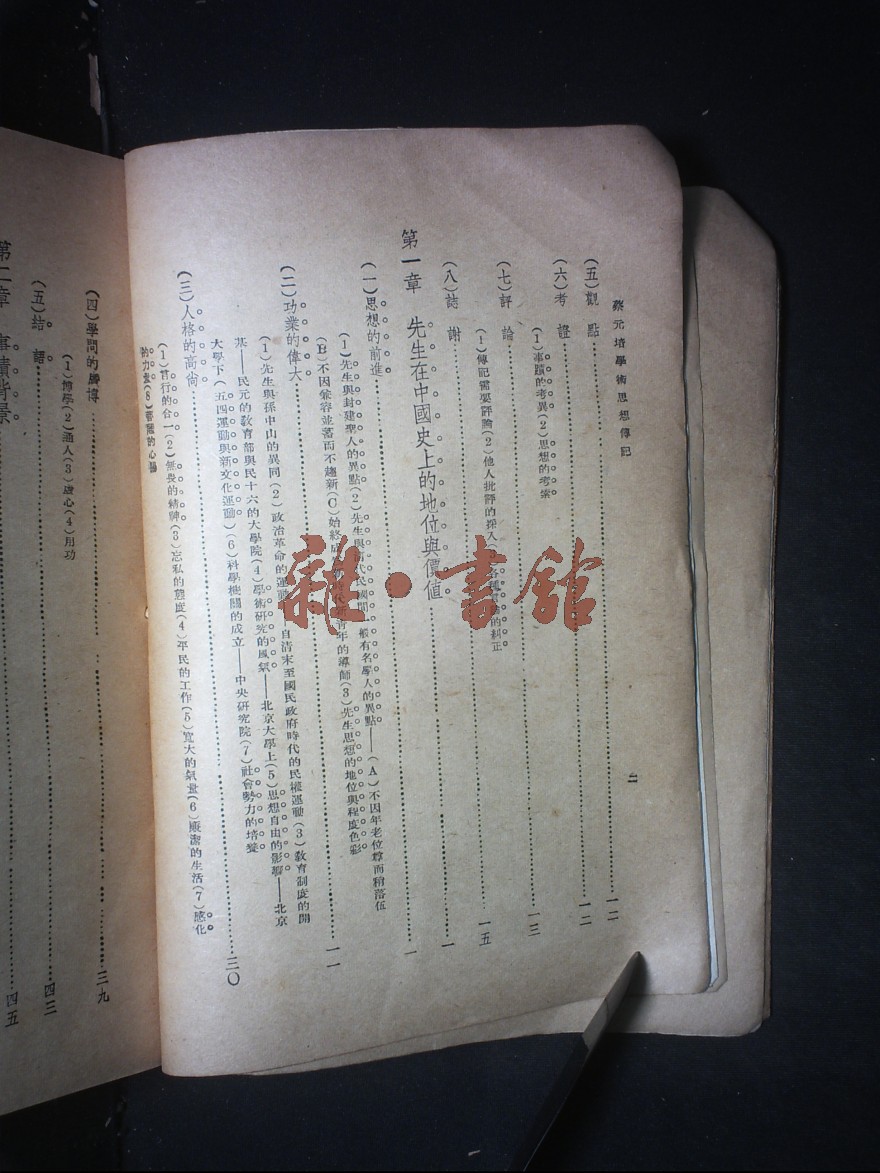 蔡元培學術思想傳記
二
(五)觀點……一二
(六)考證……一二
(1)事蹟的考異(2)思想的考索
(七)評論……一三
(1)傳記需要評論(2)他人批評的採入 各種 的糾正
(八)誌謝……一五
第一章 先生在中國史上的地位與價值……一
(一)思想的前進……一
(1)先生與封建聖人的異點(2)先生與 代民國間一般有名學人的異點——(A)不因年老位尊而稍落伍
(B)不因兼容並蓄而不趨新(C)始終 青年的導師(3)先生思想的地位與程度色彩
(二)功業的偉大……一一
(1)先生與孫中山的異同(2)政治革命的運動 自清末至國民政府時代的民權運動(3)教育制度的開
基——民元的教育部與民十六的大學院(4)學術研究的風氣——北京大學上(5)思想自由的影響——北京
大學下(五四運動與新文化運動)(6)科學機關的成立——中央研究院(7)社會勢力的培養
(三)人格的高尚……三〇
(1)言行的合一(2)無畏的精神(3)忘私的態度(4)平民的工作(5)寬大的氣量(6)廉潔的生活(7)感化
的力量(8)
(四)學問的廣博……三九
(1)博學(2)通人(3)虛心(4)用功
(五)結語……四三
第二章 事蹟背景……四五